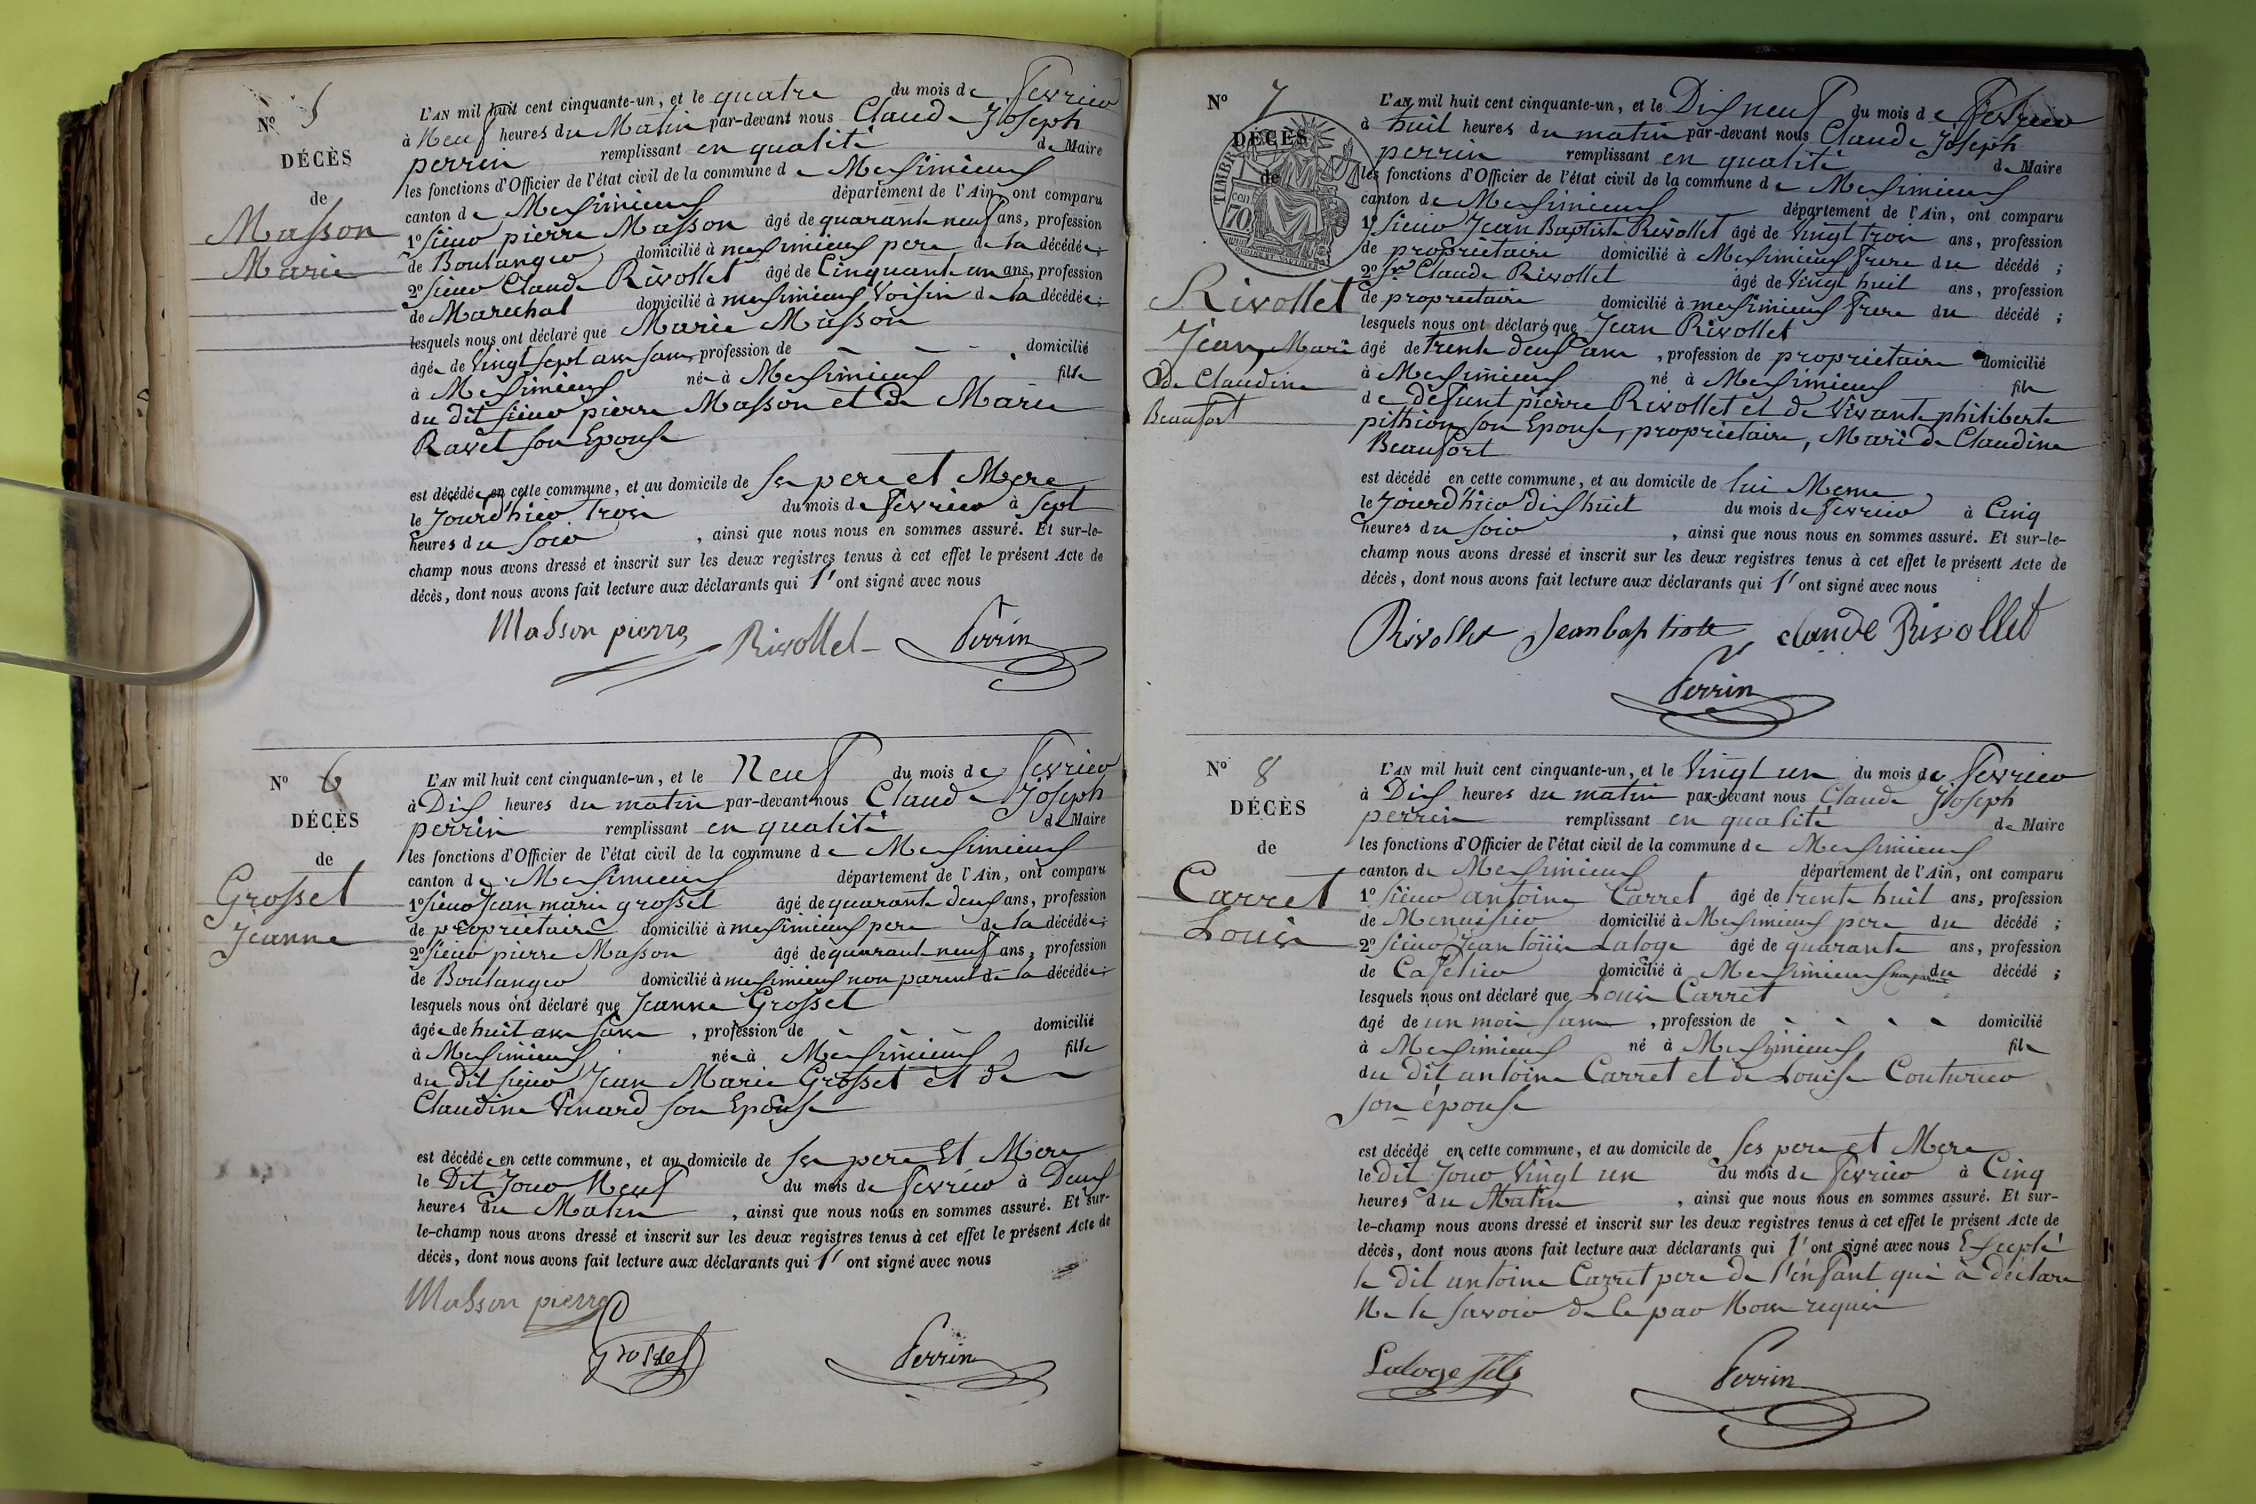 N° 5
DÉCÈS
de
Masson
Marie
L'AN mil huit cent cinquante-un, et le quatre du mois de fevrier
à Neuf heures du Matin par-devant nous Claude Joseph
perrin remplissant en qualité de Maire
les fonctions d'Officier de l'état civil de la commune de Meximieux
canton de Meximieux département de l'Ain, ont comparu
1° sieur pierre Masson âgé de quarante neuf ans, profession
de Boulanger domicilié à meximieux pere de la décédée;
2° sieur Claude Rivollet âgé de Cinquante un ans, profession
de Marechal domicilié à meximieux Voisin de la décédée;
lesquels nous ont déclaré que Marie Masson
âgée de Vingt sept ans sans profession de - - - domicilié
à Meximieux née à Meximieux fille
du dit sieur pierre Masson et de Marie
Ravet son Epouse
est décédée en cette commune, et au domicile de ses pere et Mere
le Jourd'hier trois du mois de fevrier à sept
heures du soir, ainsi que nous nous en sommes assuré. Et sur-le-
champ nous avons dressé et inscrit sur les deux registres tenus à cet effet le présent Acte de
décès, dont nous avons fait lecture aux déclarants qui l'ont signé avec nous
Masson pierre Rivollet Perrin
N° 6
DÉCÈS
de
Grosset
Jeanne
L'AN mil huit cent cinquante-un, et le Neuf du mois de fevrier
à Dix heures du matin par-devant nous Claude Joseph
perrin remplissant en qualité de Maire
les fonctions d'Officier de l'état civil de la commune de Meximieux
canton de Meximieux département de l'Ain, ont comparu
1° sieur Jean marie grosset âgé de quarante deux ans, profession
de propriétaire domicilié à meximieux pere de la décédée;
2° sieur pierre Masson âgé de quarante neuf ans, profession
de Boulanger domicilié à meximieux non parent de la décédée;
lesquels nous ont déclaré que Jeanne Grosset
âgée de huit ans sans, profession de - - - domicilié
à Meximieux née à Meximieux fille
du dit sieur Jean Marie Grosset et de
Claudine Venard son Epouse
est décédée en cette commune, et au domicile de ses pere Et Mere
le Dit Jour Neuf du mois de fevrier à Deux
heures du Matin, ainsi que nous nous en sommes assuré. Et sur-
le-champ nous avons dressé et inscrit sur les deux registres tenus à cet effet le présent Acte de
décès, dont nous avons fait lecture aux déclarants qui l'ont signé avec nous
Masson pierre
Grosset Perrin
N° 7
DÉCÈS
de
TIMBRE
70
Rivollet
Jean, Mari
de Claudine
Beaufort
L'AN mil huit cent cinquante-un, et le Dix neuf du mois de fevrier
à huit heures du matin par-devant nous Claude Joseph
perrin remplissant en qualité de Maire
les fonctions d'Officier de l'état civil de la commune de Meximieux
canton de Meximieux département de l'Ain, ont comparu
1° sieur Jean Baptiste Rivollet âgé de Vingt trois ans, profession
de propriétaire domicilié à Meximieux frere du décédé;
2° sr Claude Rivollet âgé de Vingt huit ans, profession
de propriétaire domicilié à meximieux frere du décédé;
lesquels nous ont déclaré que Jean Rivollet
âgé de trente deux ans, profession de proprietaire domicilié
à Meximieux né à Meximieux fils
de defunt pierre Rivollet et de Vivante philiberte
pithion son Epouse, propriétaire, Mari de Claudine
Beaufort
est décédé en cette commune, et au domicile de lui Meme
le Jourd'hier dix huit du mois de fevrier à Cinq
heures du soir, ainsi que nous nous en sommes assuré. Et sur-le-
champ nous avons dressé et inscrit sur les deux registres tenus à cet effet le présent Acte de
décès, dont nous avons fait lecture aux déclarants qui l'ont signé avec nous
Rivollet Jean baptiste claude Rivollet
Perrin
N° 8
DÉCÈS
de
Carret
Louis
L'AN mil huit cent cinquante-un, et le Vingt un du mois de fevrier
à Dix heures du matin par-devant nous Claude Joseph
perrin remplissant en qualité de Maire
les fonctions d'Officier de l'état civil de la commune de Meximieux
canton de Meximieux département de l'Ain, ont comparu
1° sieur antoine Carret âgé de trente huit ans, profession
de Menuisier domicilié à Meximieux pere du décédé;
2° sieur Jean louis Laloge âgé de quarante ans, profession
de Cafetier domicilié à Meximieux non parent du décédé;
lesquels nous ont déclaré que Louis Carret
âgé de un mois sans, profession de - - - - domicilié
à Meximieux né à Meximieux fils
du dit antoine Carret et de Louise Couturier
son épouse
est décédé en cette commune, et au domicile de ses pere et Mere
le dit Jour Vingt un du mois de fevrier à Cinq
heures du Matin, ainsi que nous nous en sommes assuré. Et sur-
le-champ nous avons dressé et inscrit sur les deux registres tenus à cet effet le présent Acte de
décès, dont nous avons fait lecture aux déclarants qui l'ont signé avec nous Excepté
le dit antoine Carret pere de l'enfant qui a déclaré
Ne le savoir de ce par Nous requis
Laloge fils Perrin